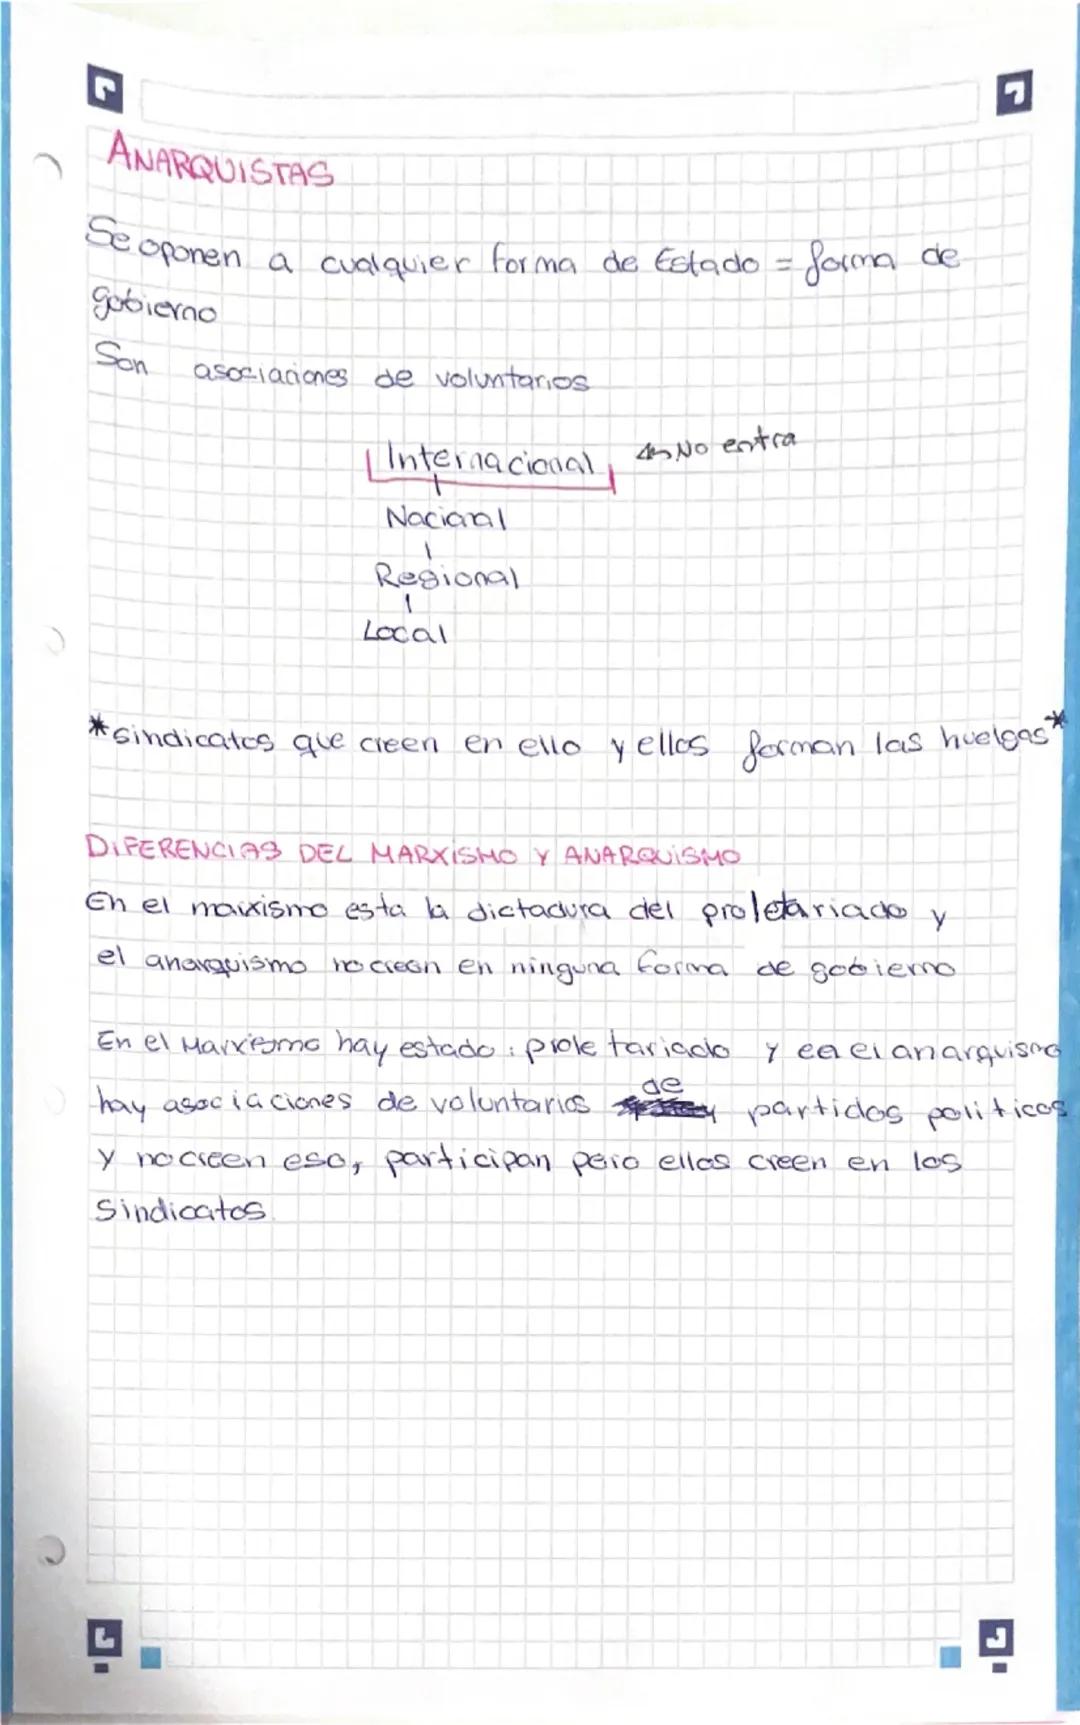 ANARQUISTAS
Se oponen a cualquier forma de Estado = forma de
gobierno
Son asociaciones de voluntarios
Internacional No entra
Nacional
Regional
Local
*sindicatos que creen en ello y ellos forman las huelgas*
DIFERENCIAS DEL MARXISMO Y ANARQUISMO
En el marxismo esta la dictadura del proletariado y
el anarquismo no creen en ninguna forma de gobierno
En el Marxismo hay estado: proletariado y en el anarquismo
hay asociaciones de voluntarios de y partidos politicos
y no creen eso, participan pero ellos creen en los
Sindicatos.